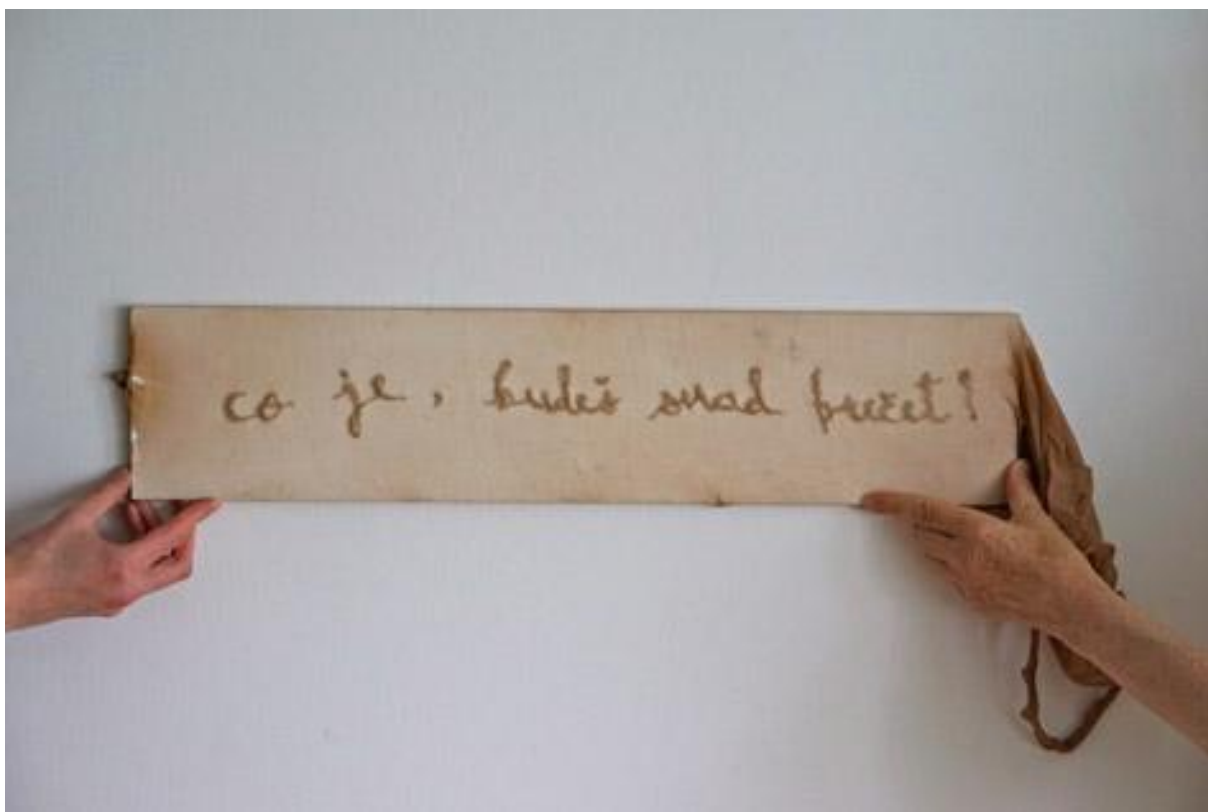 co je, budeš snad brečet!